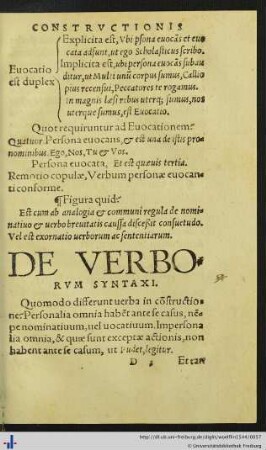 CONSTRVCTIONIS
Explicita est, Vbi psona euocās et euo
cata adsunt, ut ego Scholasticus scribo.
Implicita est, ubi persona euocās subau
ditur, ut Multi unū corpus sumus, Callio
pius recensui, Peccatores te rogamus.
In magnis læsi rebus uterq; sumus, nos
uterque sumus, est Euocatio.
Euocatio
est duplex
Quot requiruntur ad Euocationem?
Quatuor. Persona euocans, & est una de istis pro
nominibus. Ego, Nos, Tu & Vos.
Persona euocata, Et est quæuis tertia.
Remotio copulæ, Verbum personæ euocan
ti conforme.
¶Figura quid?
Est cum ab analogia & communi regula de nomi
natiuo & uerbo breuitatis caussa discesāt consuetudo.
Vel est exornatio uerborum ac sententiarum.
DE VERBO-
RVM SYNTAXI.
Quomodo differunt uerba in cōstructio
ne? Personalia omnia habēt ante se casus, nē-
pe nominatiuum, uel uocatiuum. Impersona
lia omnia, & quæ sunt exceptæ actionis, non
habent ante se casum, ut Pudet, legitur.
D
http://dl.ub.uni-freiburg.de/diglit/wulfflin1534/0057
© Universitätsbibliothek Freiburg